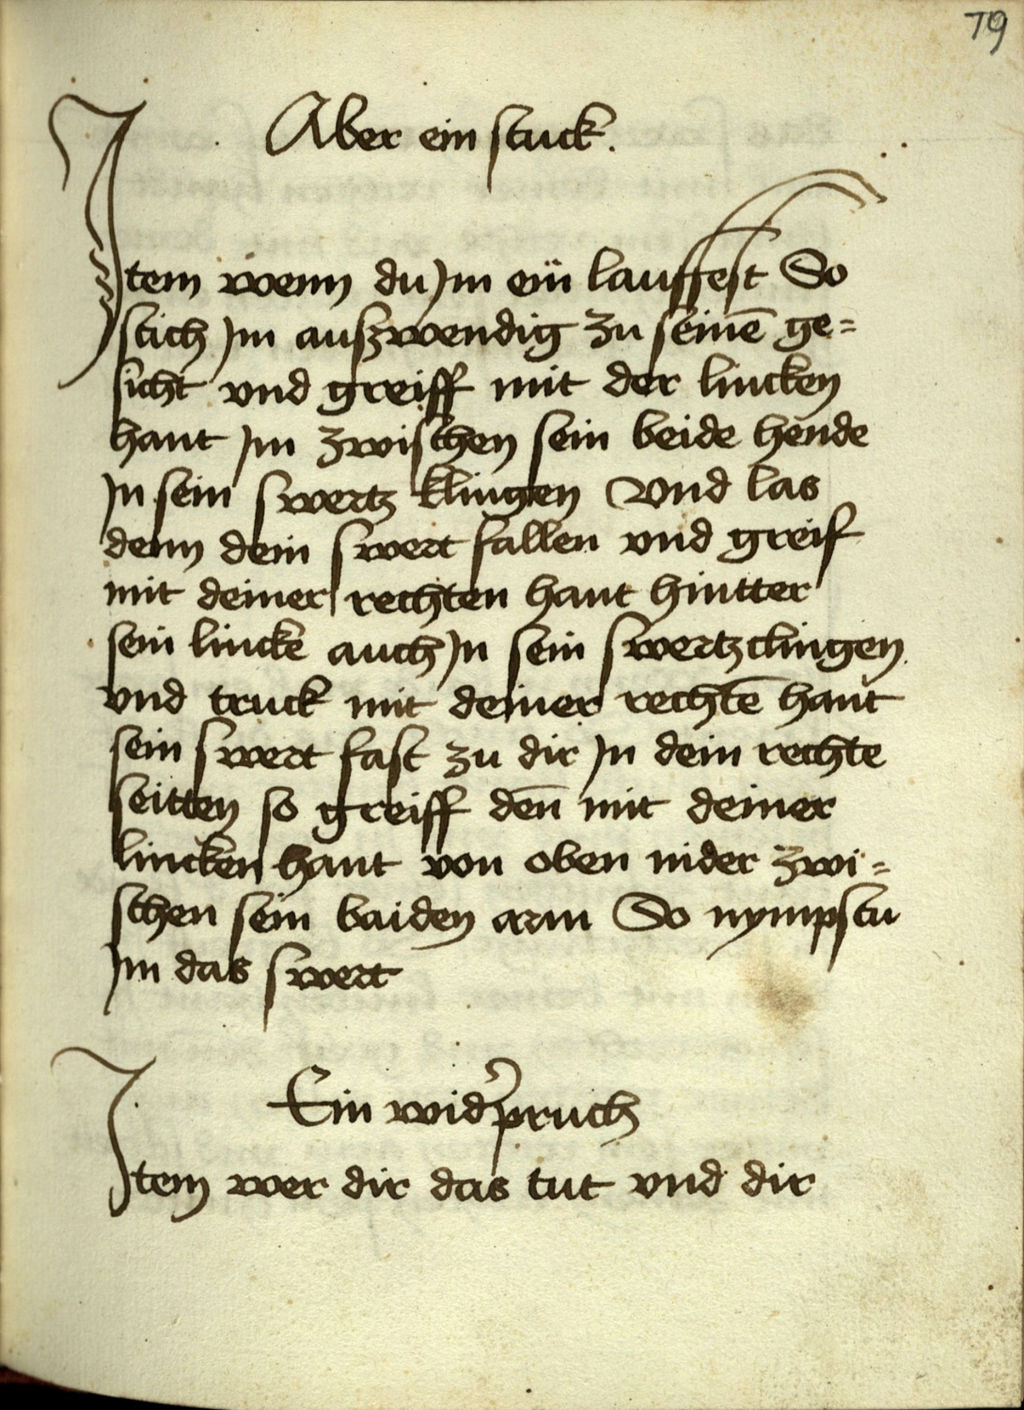 79
Aber ein stuck.
Item wenn du Jm ein lauffest So
stich Jm auszwendig zu seinē ge=
sicht vnd greiff mit der lincken
hant Jm zwischen sein beide hende
Jn sein swertz klingen Vnd las
denn dein swert fallen vnd greif
mit deiner rechten hant hintter
sein lincke auch Jn sein swertzclingen
vnd truck mit deiner rechtē hant
sein swert fast zu dir Jn dein rechte
seitten so greiff den̄ mit deiner
lincken hant von oben nider zwi=
schen sein baiden arm So nympstu
Jm das swert
Ein wid'spruch
Item wer dir das tut vnd dir